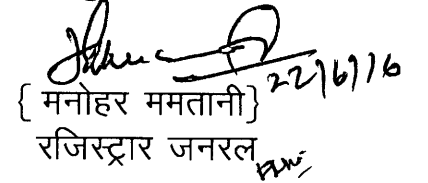 22/6/16
{ मनोहर ममतानी}
रजिस्ट्रार जनरल